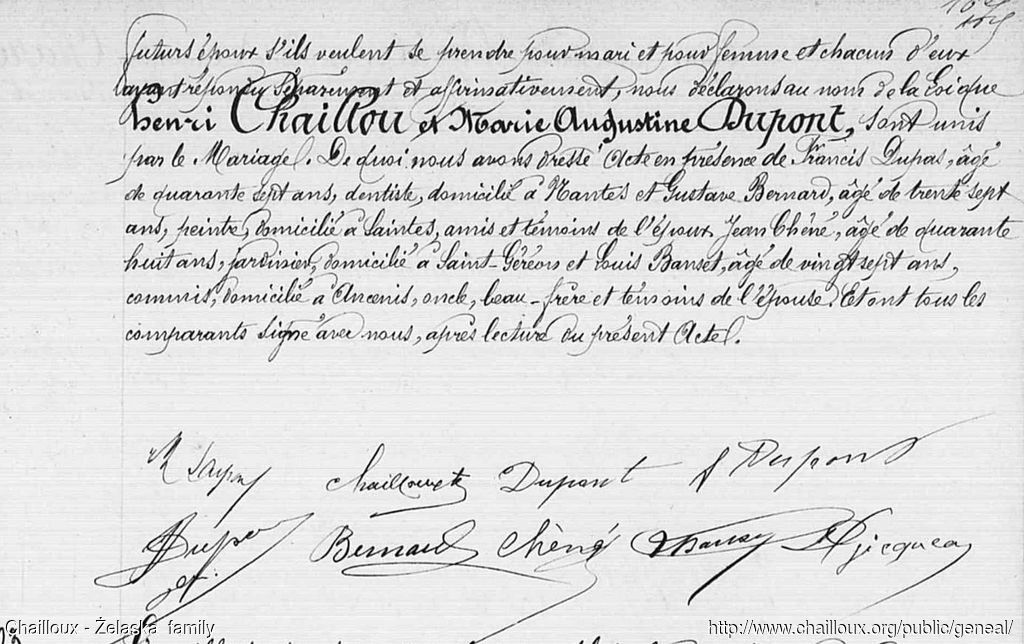 futurs époux s'ils veulent se prendre pour mari et pour femme et chacun d'eux
ayant répondu séparément et affirmativement, nous déclarons au nom de la Loi que
Henri Chaillou et Marie Augustine Dupont, sont unis
par le Mariage. De quoi nous avons dressé Acte en présence de Francis Dupas, âgé
de quarante sept ans, dentiste, domicilié à Nantes et Gustave Bernard, âgé de trente sept
ans, peintre, domicilié à Saintes, amis et témoins de l'époux, Jean Chéné, âgé de quarante
huit ans, jardinier, domicilié à Saint-Géréon et Louis Banset, âgé de vingt sept ans,
commis, domicilié à Ancenis, oncle, beau-frère et témoins de l'épouse. Et ont tous les
comparants signé avec nous, après lecture du présent Acte.
Dupont Dupont
Bernard Chéné
Chailloux - Żelaska family http://www.chailloux.org/public/geneal/